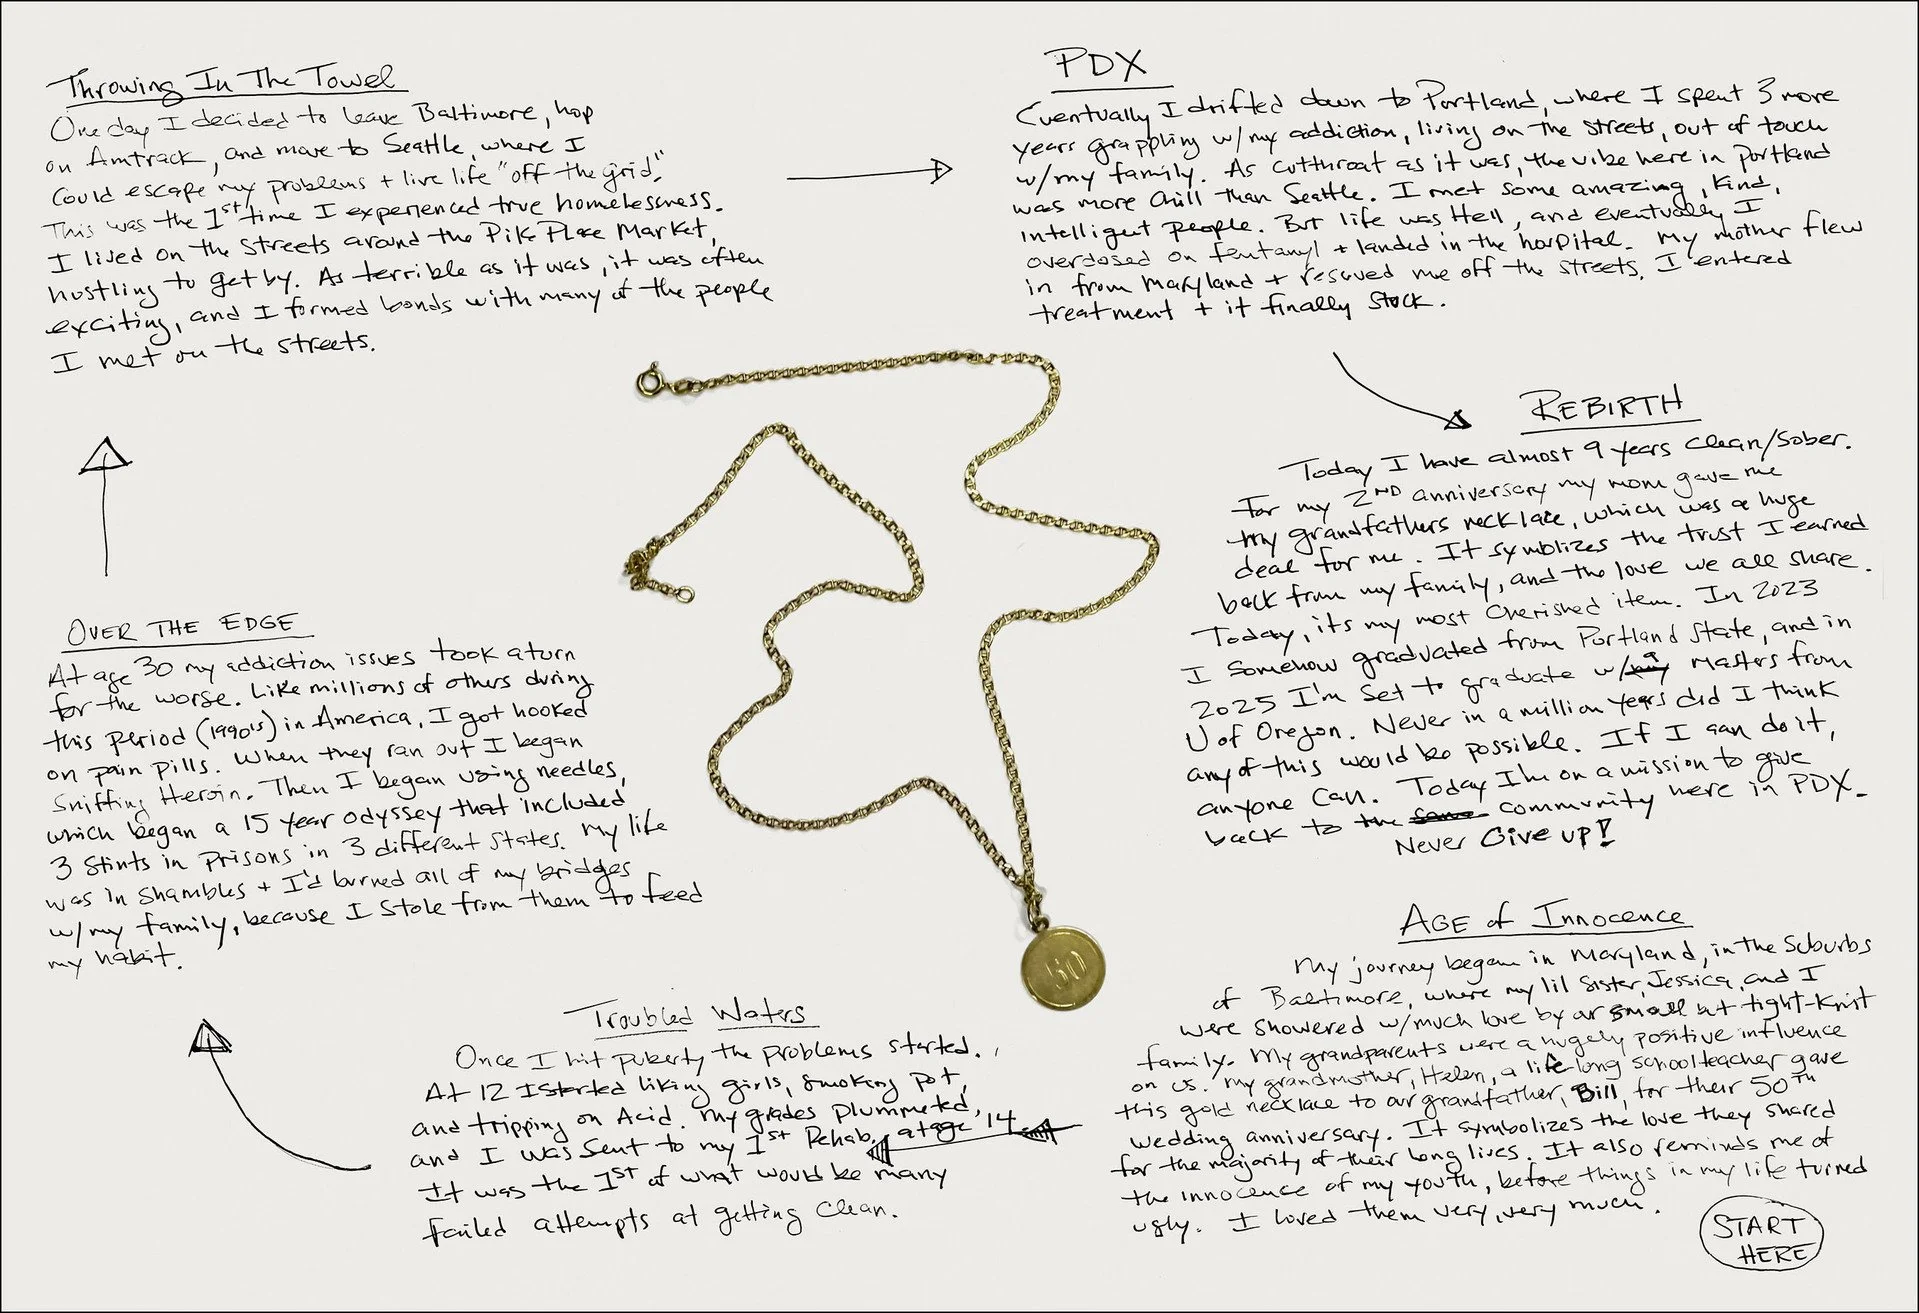 START
HERE
AGE of INNOCENCE
My journey began in Maryland, in the suburbs
of Baltimore, where my lil sister, Jessica, and I
were showered w/much love by our small but tight-knit
family. My grandparents were a hugely positive influence
on us. My grandmother, Helen, a life-long schoolteacher gave
this gold necklace to our grandfather, Bill, for their 50TH
wedding anniversary. It symbolizes the love they shared
for the majority of their long lives. It also reminds me of
the innocence of my youth, before things in my life turned
ugly. I loved them very, very much.
Troubled Waters
Once I hit puberty the problems started.
At 12 I started liking girls, smoking pot,
and tripping on Acid. My grades plummeted,
and I was sent to my 1st Rehab, at age 14.
It was the 1ST of what would be many
failed attempts at getting clean.
OVER THE EDGE
At age 30 my addiction issues took a turn
for the worse. Like millions of others during
this period (1990's) in America, I got hooked
on pain pills. When they ran out I began
sniffing Heroin. Then I began using needles,
which began a 15 year odyssey that included
3 stints in prisons in 3 different states. My life
was in shambles + I'd burned all of my bridges
w/my family, because I stole from them to feed
my habit.
Throwing In The Towel
One day I decided to leave Baltimore, hop
on Amtrack, and move to Seattle, where I
could escape my problems + live life "off the grid."
This was the 1st time I experienced true homelessness.
I lived on the streets around the Pike Place Market,
hustling to get by. As terrible as it was, it was often
exciting, and I formed bonds with many of the people
I met on the streets.
PDX
Eventually I drifted down to Portland, where I spent 3 more
years grappling w/my addiction, living on the streets, out of touch
w/my family. As cutthroat as it was, the vibe here in Portland
was more chill than Seattle. I met some amazing, kind,
intelligent people. But life was Hell, and eventually I
overdosed on fentanyl + landed in the hospital. My mother flew
in from Maryland + rescued me off the streets. I entered
treatment + it finally stuck.
REBIRTH
Today I have almost 9 years clean/sober.
For my 2ND anniversary my mom gave me
my grandfathers necklace, which was a huge
deal for me. It symblizes the trust I earned
back from my family, and the love we all share.
Today, it's my most cherished item. In 2023
I somehow graduated from Portland State, and in
2025 I'm set to graduate w/a Masters from
U of Oregon. Never in a million years did I think
any of this would be possible. If I can do it,
anyone can. Today I'm on a mission to give
back to the community here in PDX.
Never Give up!
50